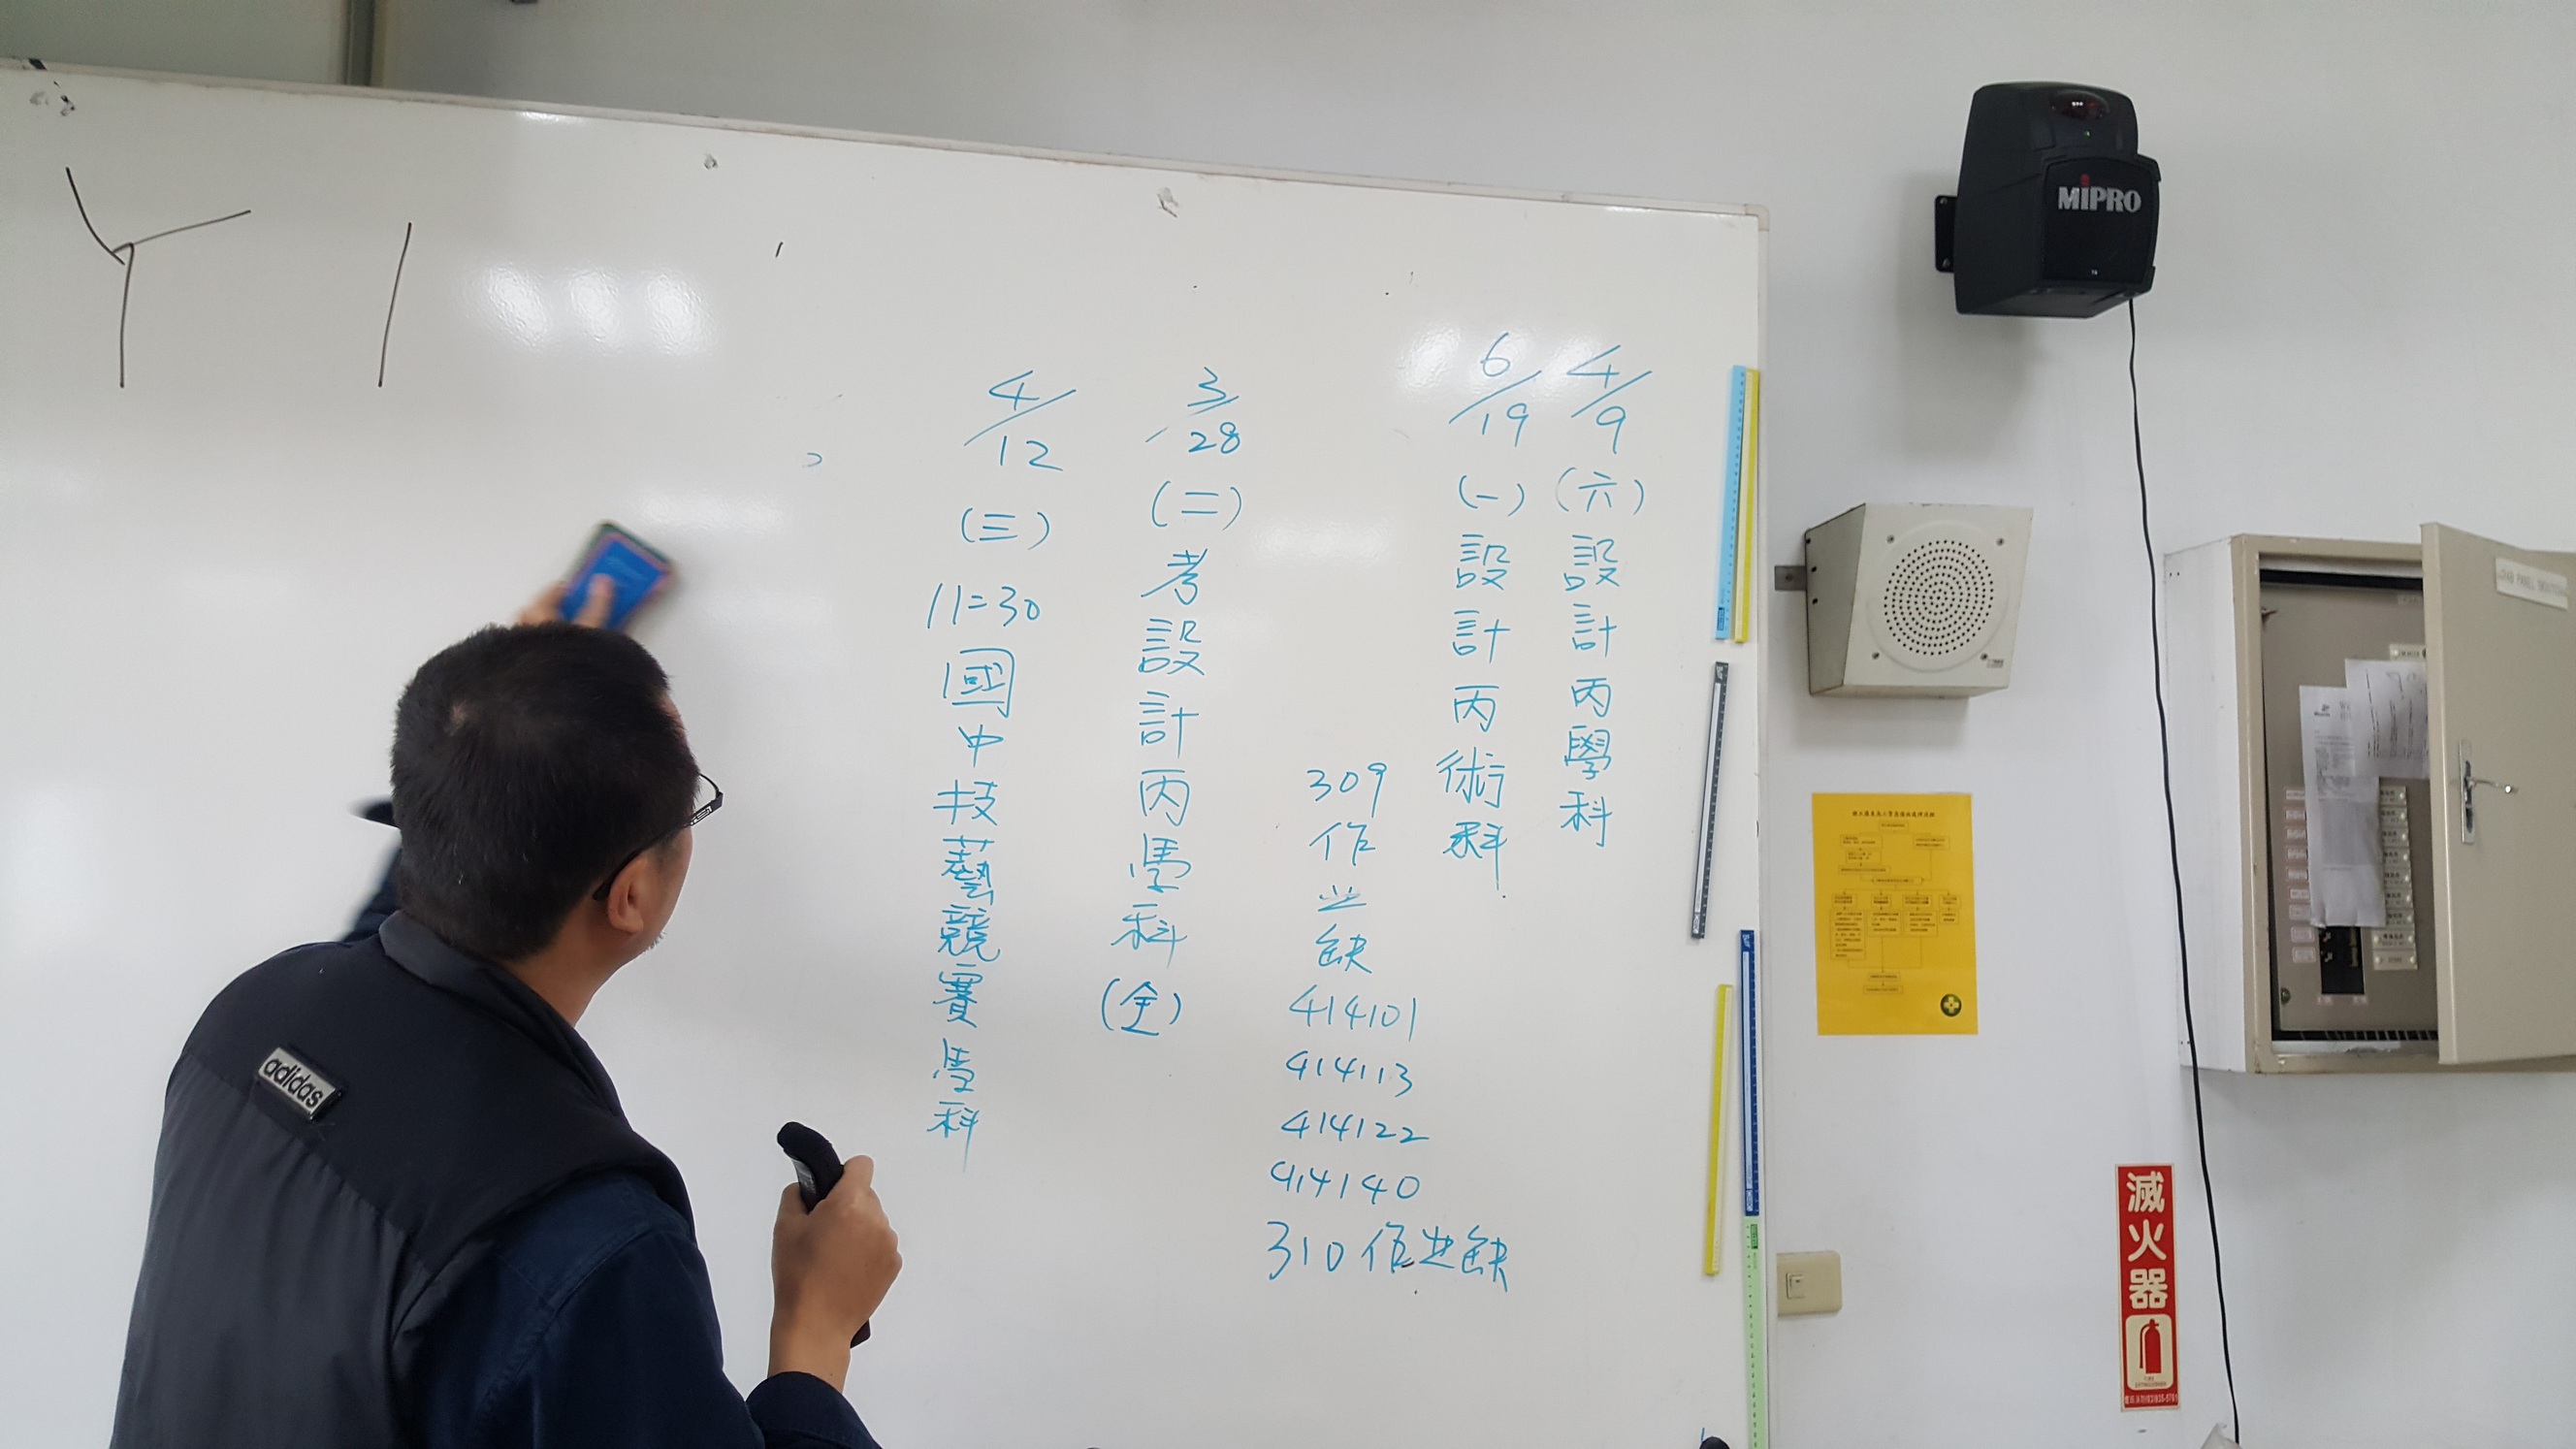 4/9 (六) 設計丙學科
6/19 (一) 設計丙術科
309作业缺
414101
414113
414122
414140
310作业缺
3/28 (二) 考設計丙學科(全)
4/12 (三) 11:30 國中技藝競賽學科
Y 1
adidas
MIPRO
滅火器